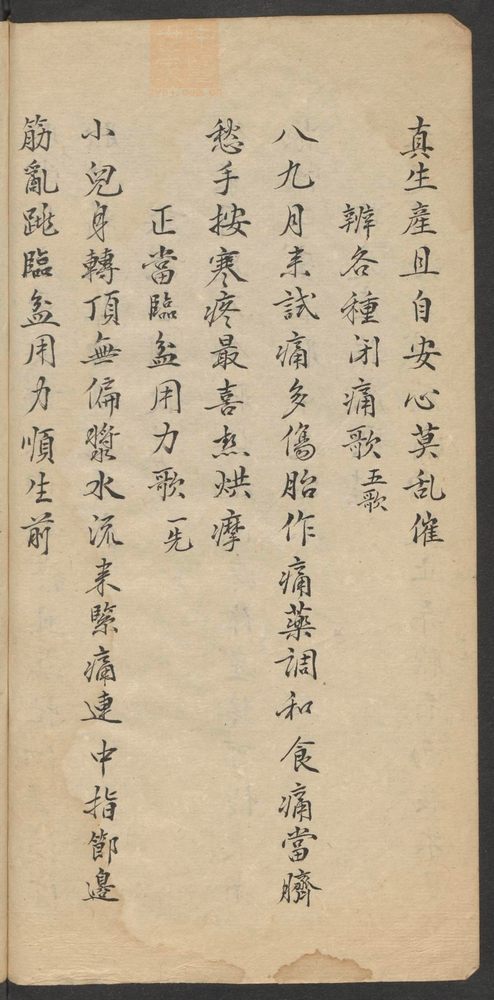 真生產且自安心莫乱催
辨各種闭痛歌 五歌
八九月来試痛多傷胎作痛藥調和食痛當臍
愁手按寒疼最喜热烘摩
正當臨盆用力歌 一先
小兒身轉頂無偏漿水流来緊痛連中指節邊
筋亂跳臨盆用力順生前